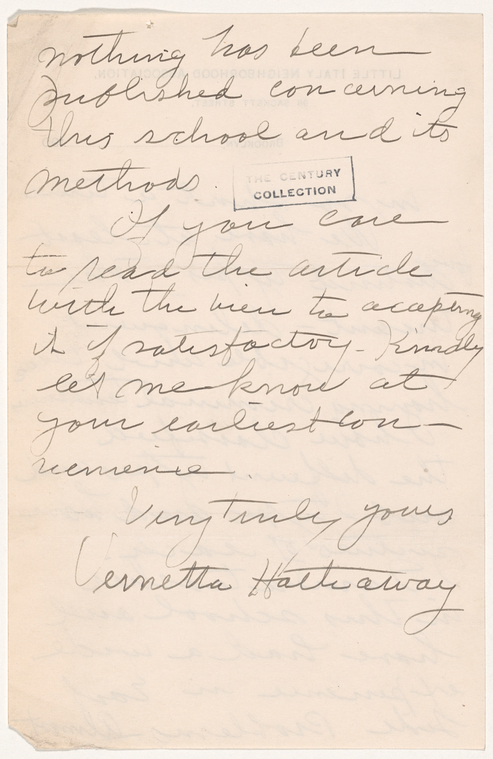 nothing has been
published concerning
this school and its
methods.
THE CENTURY
COLLECTION
If you care
to read the article
with the view to accepting
it if satisfactory - Kindly
let me know at
your earliest con-
venience.
Very truly yours
Vernetta Hathaway